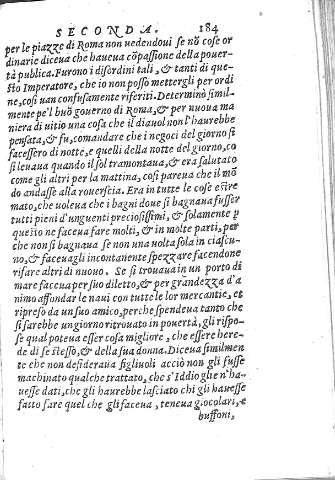 SECONDA. 184
per le piazze di Roma non uedendoui se nõ cose or
dinarie diceua che haueua cõpassione della pouer-
tà publica. Furono i disordini tali, & tanti di que-
sto Imperatore, che io non posso mettergli per ordi
ne, cosi uan confusamente riferiti. Determinò simil-
mente pe'l buõ gouerno di Roma, & per nuoua ma
niera di uitio una cosa che il diauol non l'haurebbe
pensata, & fu, comandare che i negoci del giorno si
facessero di notte, e quelli della notte del giorno, co
si leuaua quando il sol tramontaua, & era salutato
come gli altri per la mattina, cosi pareua che il mõ
do andasse alla rouerscia. Era in tutte le cose estre
mato, che uoleua che i bagni doue si bagnaua fusser
tutti pieni d'unguenti preciosissimi, & solamente p
questo ne faceua fare molti, & in molte parti, per
che non si bagnaua se non una uolta sola in ciascu-
no, & faceuagli incontanente spezzare facendone
rifare altri di nuouo. Se si trouaua in un porto di
mare faceua per suo diletto, & per grandezza d'a
nimo affondar le naui con tutte le lor mercantie, et
ripreso da un suo amico, perche spendeua tanto che
si sarebbe un giorno ritrouato in pouertà, gli rispo-
se qual poteua esser cosa migliore, che essere here-
de di se stesso, & della sua donna. Diceua similmen
te che non desideraua figliuoli acciò non gli fusse
machinato qualche trattato, che s'Iddio glie n'ha-
uesse dati, che gli haurebbe lasciato chi gli hauesse
fatto fare quel che gli faceua, teneua giocolari, e
buffoni,